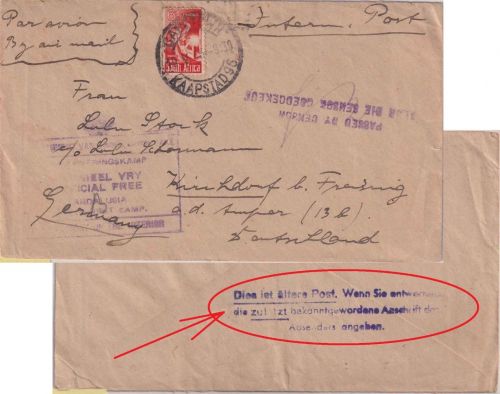 Par avion
By air mail
Intern. Post
South Africa
KAAPSTAD
PASSED BY CENSOR
DEUR DIE SENSOR GOEDGEKEUR
Frau
Lulu Stork
c/o Lulu Schormann
Kirchdorf b. Freising
a.d. Amper (13b)
Deutschland
Germany
INTERNERINGSKAMP
GEHEEL VRY
OFFICIAL FREE
ANDALUSIA
CAMP.
INTERIOR
Dies ist ältere Post. Wenn Sie antworten
die zuletzt bekanntgewordene Anschrift des
Absenders angeben.